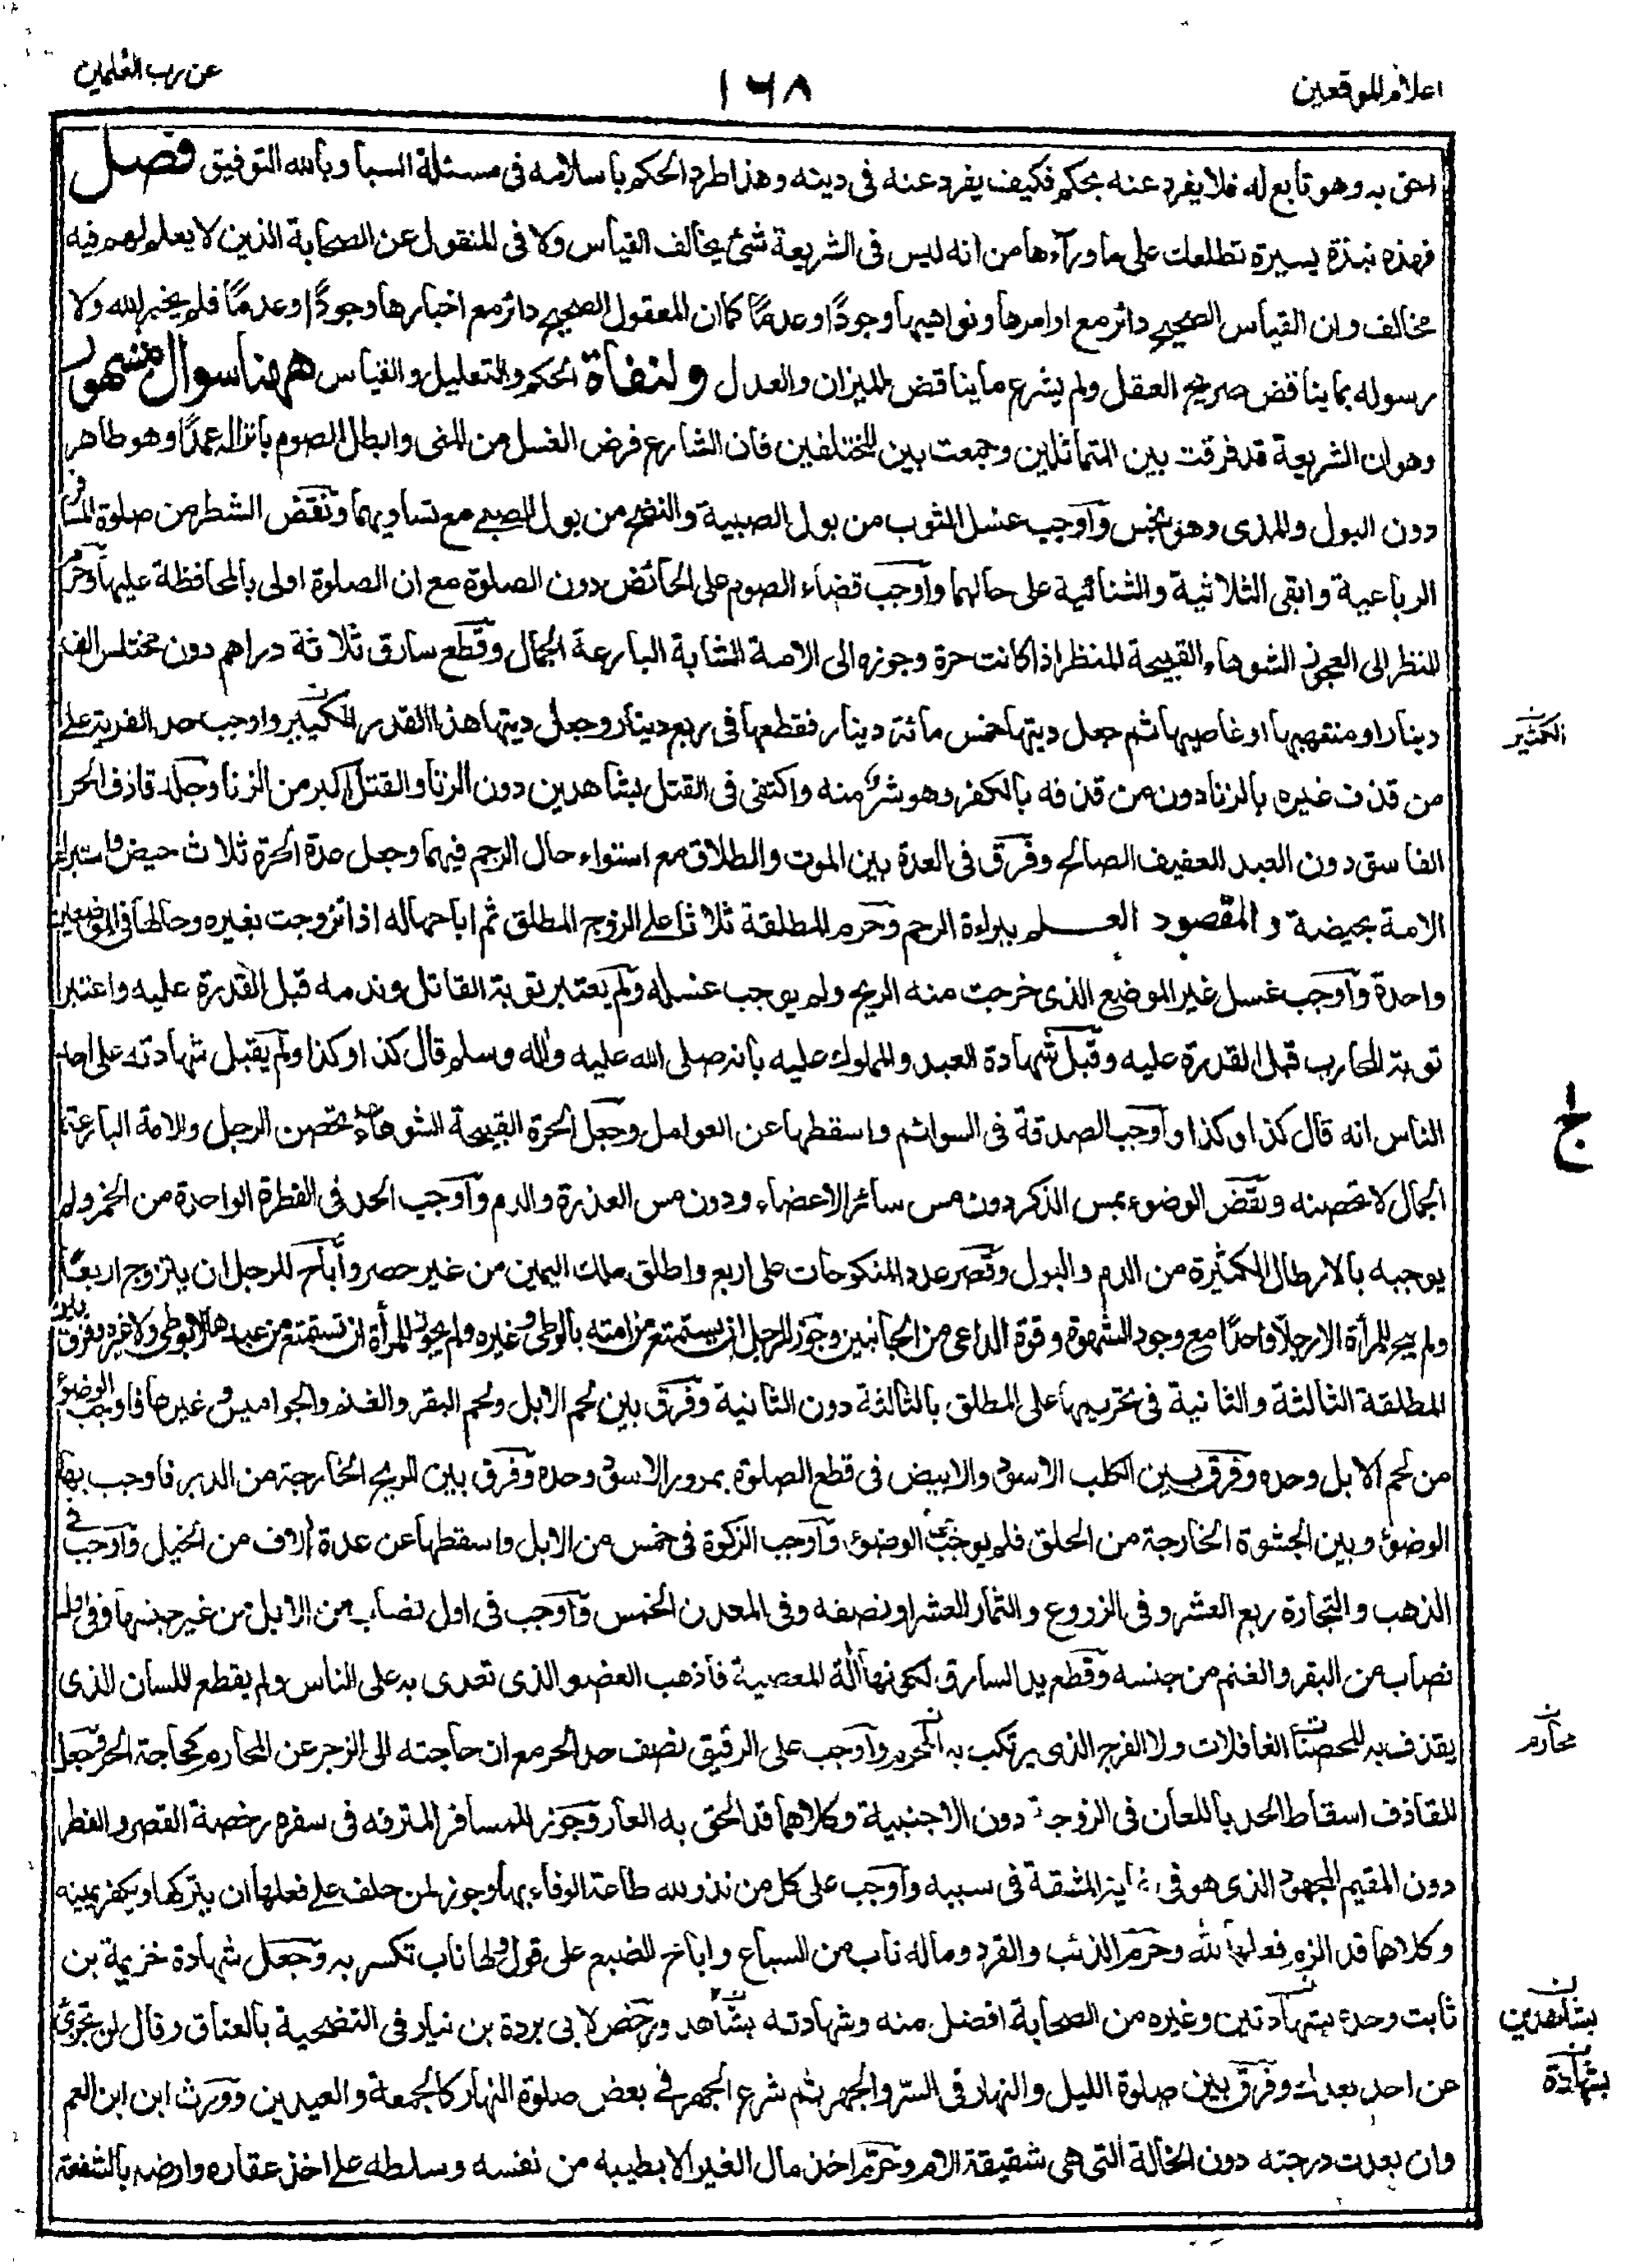 اعلام الموقعين
١٦٨
عن رب العلمين
احق به وهو تابع له فلا يفرد عنه بحكم فكيف يفرد عنه فى دينه وهذا طرد الحكم باسلامه فى مسئلة السبا وبالله التوفيق فصل
فهذه نبذة يسيرة تطلعك على ما ورآءها من انه ليس فى الشريعة شئ يخالف القياس ولا فى المنقول عن الصحابة الذين لا يعلم لهم فيه
مخالف وان القياس الصحيح دائر مع اوامرها ونواهيها وجودًا وعدمًا كما ان المعقول الصحيح دائر مع اخبارها وجودًا وعدمًا فلم يخبر الله ولا
رسوله بما يناقض صريح العقل ولم يشرع ما يناقض الميزان والعدل ولنفاة الحكم والتعليل والقياس ههنا سوال مشهور
وهو ان الشريعة قد فرقت بين المتماثلين وجمعت بين المختلفين فان الشارع فرض الغسل من المنى وابطل الصوم بانزاله عمدًا وهو طاهر
دون البول والمذى وهو نجس وآوجب غسل الثوب من بول الصبية والنضح من بول الصبى مع تساويهما ونقض الشطر من صلوة المسافر
الرباعية وابقى الثلاثية والثنائية على حالهما وآوجب قضاء الصوم على الحائض دون الصلوة مع ان الصلوة اولى بالمحافظة عليها وحرم
النظر الى العجوز الشوهاء القبيحة المنظر اذا كانت حرة وجوزه الى الامة الشابة البارعة الجمال وقطع سارق ثلاثة دراهم دون مختلس الف
دينار او منتهبها او غاصبها ثم جعل ديتها خمس مائة دينار فقطعها فى ربع دينار وجعل ديتها هذا القدر الكبير واوجب حد الفرية على
الكثير
من قذف غيره بالزنا دون من قذفه بالكفر وهو شر منه واكتفى فى القتل بشاهدين دون الزنا والقتل اكبر من الزنا وجلد قاذف الحر
الفاسق دون العبد العفيف الصالح وفرق فى العدة بين الموت والطلاق مع استواء حال الرحم فيهما وجعل عدة الحرة ثلاث حيض واستبراء
الامة بحيضة والمقصود العلم ببراءة الرحم وحرم المطلقة ثلاثا على الزوج المطلق ثم اباحها له اذا تزوجت بغيره وحالها فى الموضعين
واحدة وآوجب غسل غير الموضع الذى خرجت منه الريح ولم يوجب غسله ولم يعتبر توبة القاتل وندمه قبل القدرة عليه واعتبر
توبة المحارب قبل القدرة عليه وقبل شهادة العبد والمملوك عليه بانه صلى الله عليه وآله وسلم قال كذا وكذا ولم يقبل شهادته على احد
الناس انه قال كذا وكذا وآوجب الصدقة فى السوائم واسقطها عن العوامل وجعل الحرة القبيحة الشوهاء تحصن الرجل والامة البارعة
الجمال لا تحصنه ونقض الوضوء بمس الذكر دون مس سائر الاعضاء ودون مس العذرة والدم وآوجب الحد فى القطرة الواحدة من الخمر ولم
يوجبه بالارطال الكثيرة من الدم والبول وقصر عدد المنكوحات على اربع واطلق ملك اليمين من غير حصر وأباح للرجل ان يتزوج اربعًا
ولم يبح للمرأة الا رجلا واحدًا مع وجود الشهوة وقوة الداعى من الجانبين وجوز للرجل ان يستمتع من امته بالوطى وغيره ولم يجوز للمرأة ان تستمتع من عبدها لا بوطى ولا غيره وفرق بين
المطلقة الثالثة والثانية فى تحريمها على المطلق بالثالثة دون الثانية وفرق بين لحم الابل ولحم البقر والغنم والجواميس وغيرها فاوجب الوضوء
من لحم الابل وحده وفرق بين الكلب الاسود والابيض فى قطع الصلوة بمرور الاسود وحده وفرق بين الريح الخارجة من الدبر فاوجب بها
الوضوء وبين الجشوة الخارجة من الحلق فلم يوجب الوضوء وآوجب الزكوة فى خمس من الابل واسقطها عن عدة آلاف من الخيل وآوجب فى
الذهب والتجارة ربع العشر وفى الزروع والثمار العشر او نصفه وفى المعدن الخمس وآوجب فى اول نصاب من الابل من غير جنسها وفى اول
نصاب من البقر والغنم من جنسه وقطع يد السارق لكونها آلة المعصية فاذهب العضو الذى تعدى به على الناس ولم يقطع اللسان الذى
يقذف به المحصنات الغافلات ولا الفرج الذى يرتكب به المحرم وآوجب على الرقيق نصف حد الحر مع ان حاجته الى الزجر عن المحارم كحاجة الحر وجعل
محارم
للقاذف اسقاط الحد باللعان فى الزوجة دون الاجنبية وكلاهما قد الحق به العار وجوز للمسافر المترفه فى سفره رخصة القصر والفطر
دون المقيم المجهود الذى هو فى غاية المشقة فى سببه وآوجب على كل من نذر لله طاعة الوفاء بها وجوز لمن حلف على فعلها ان يتركها ويكفر يمينه
وكلاهما قد الزم فعلها لله وحرم الذئب والقرد وماله ناب من السباع واباح الضبع على قول ولها ناب تكسر به وجعل شهادة خزيمة بن
ثابت وحده بشهادتين وغيره من الصحابة افضل منه وشهادته بشاهد ورخص لابى بردة بن نيار فى التضحية بالعناق وقال لن تجزئ
بشاهدين
بشهادة
عن احد بعدك وفرق بين صلوة الليل والنهار فى السر والجهر ثم شرع الجهر فى بعض صلوة النهار كالجمعة والعيدين وورث ابن ابن العم
وان بعدت درجته دون الخالة التى هى شقيقة الام وحرم اخذ مال الغير الا بطيبه من نفسه وسلطه على اخذ عقاره وارضه بالشفعة